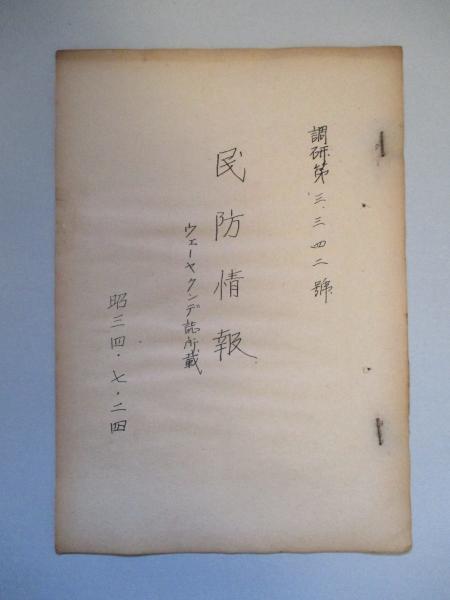 調研第三、三四二號
民防情報
ウェーヤクンデ誌所載
昭三四・七・二四